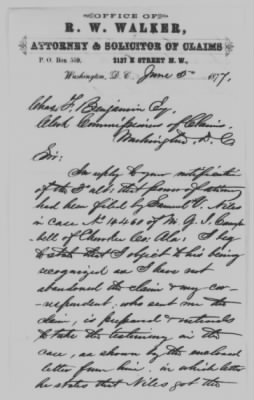 OFFICE OF
R. W. WALKER,
ATTORNEY & SOLICITOR OF CLAIMS
P. O. Box 559, 2137 H STREET N. W.,
Washington, D. C., June 5th 1877.
Chas. F. Benjamin Esq.
Clerk Commissioners of Claims
Washington, D. C
Sir:
In reply to your notification
of the 2d ult; that power of attorney
had been filed by Samuel V. Niles
in case No 14461 of M. G. J. Camp-
bell of Cherokee Co. Ala; I beg
to state that I object to his being
recognized as I have not
abandoned the claim & my cor-
respondent, who sent me the
claim, is prepared & intends
to take the testimony in the
case, as shown by the enclosed
letter from him, in which letter
he states that Niles got the